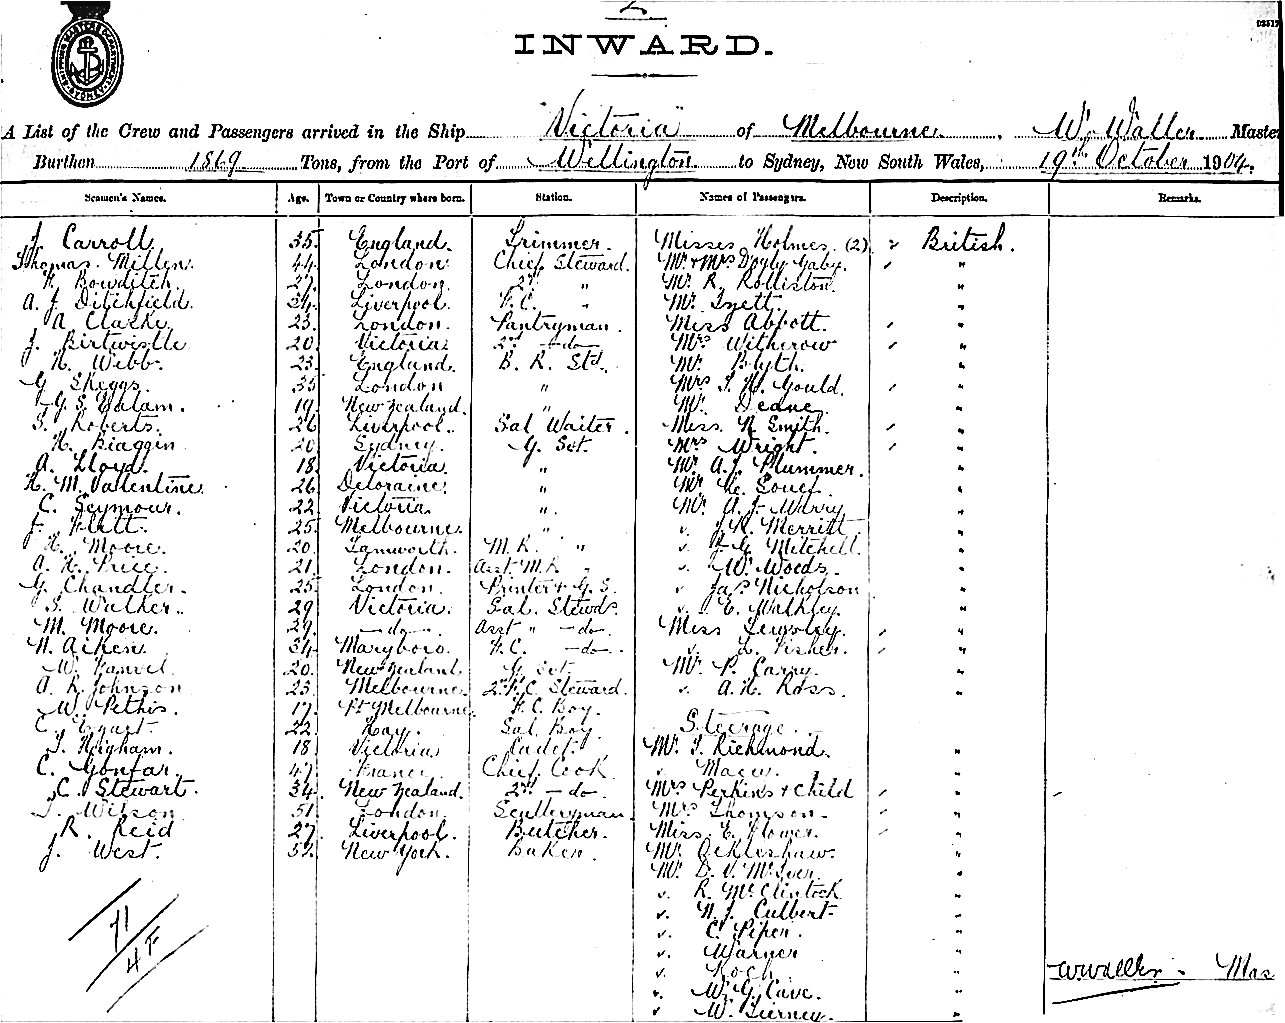 2
INWARD.
A List of the Crew and Passengers arrived in the Ship "Victoria" of Melbourne, W. Waller Master
Burthen 1869 Tons, from the Port of Wellington to Sydney, New South Wales, 19th October 1904.
Seamen's Names. Age. Town or Country where born. Station. Names of Passengers. Description. Remarks.
J. Carroll 35 England. Trimmer. Misses Holmes. (2) British.
Thomas Millen 44 London Chief Steward. Mr & Mrs Doyly Gaby. "
H. Bowditch 27 London. 2nd " Mr R. Rolliston. "
A. J. Ditchfield. 34 Liverpool. F.C. " Mr "
A. Clarke 23 London. Pantryman. Miss Abbott. "
J. Birtwistle 20 Victoria 2nd -do- Mrs Witherow "
H. Webb. 23 England. B. R. Std. Mr Blyth. "
G. Skeggs. 35 London " Mrs T. H. Gould. "
G. S. 19 New Zealand. " Mr Deane "
S. Roberts. 26 Liverpool. Sal Waiter. Miss N. Smith. "
H. Biaggin 20 Sydney. G. Set. Mrs Wright. "
A. Lloyd. 18 Victoria. " Mr A. J. Plummer. "
H. M. Valentine. 26 Deloraine. " Mr "
C. Seymour. 22 Victoria ". Mr A. J. "
J. 25 Melbourne. " " J. H. Merritt "
H. Moore. 20 Tamworth. M. R. " " Mitchell. "
A. H. Price. 21 London. Asst M.R. " " W. Woods. "
G. Chandler. 25 London. Printer & G. S. " Jas Nicholson "
S. Walker. 29 Victoria. Sal. Stewds. " E. Wathley. "
M. Moore. 29 -do- Asst " -do- Miss "
N. Aiken. 34 Maryboro. F.C. -do- " L. Fisher. "
W. 20 New Zealand. G. Set. Mr P. Carry. "
A. R. Johnson 23 Melbourne. 2. F. C. Steward. " A. H. Ross. "
W. Pethis. 17 Pt Melbourne. F. C. Boy.
C. 22 Hay. Sal Boy. Steerage.
T. Higham. 18 Victoria Cadet. Mr T. Richmond. "
C. Gonfar. 47 France Chief Cook " "
C. Stewart. 34 New Zealand. 2nd -do- Mrs Perkins & Child "
T. Wilson 51 London. Sculleryman. Mrs Thomson. "
R. Reid 27 Liverpool. Butcher. Miss E. Flower. "
J. West. New York. Baker. Mr "
Mr D. V. McIver. "
" R. McClintock "
" N. J. Culbert "
" C. Piper. "
" Warner "
" Koch. "
" W. G. Cave. "
" W. Tierney. "
71
47
W. Waller. Mas